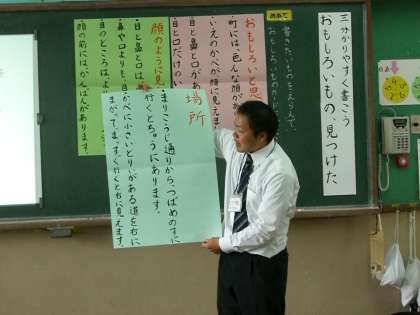 三 分かりやすく書こう
おもしろいもの、見つけた
めあて
書きたいものをえらんで、
おもしろいと思
町には、色んな顔が
いえのかべが顔に見えま
目と鼻と口が
目と口だけのい
顔のように見
・目と鼻と口は、
・鼻や口よりも、目が
目のところは、
顔の前には、かんばんがあります。
場所
・まりこうじ通りから、つばめのすに
行くとちゅうにあります。
・かべに小さいとりいがある道を右に
まがって、まっすぐ行くと右に見えます。